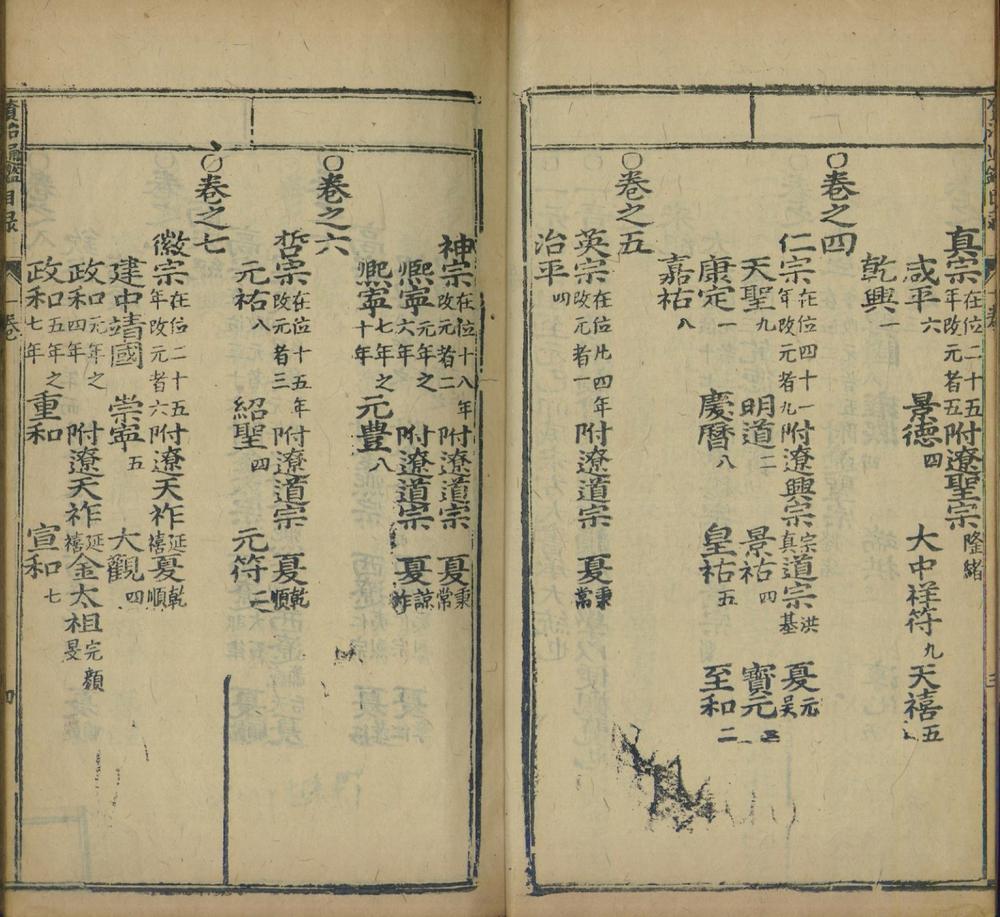 真宗在位二十五年改元者五附遼聖宗隆緒
咸平六 景德四 大中祥符九 天禧五
乾興一
○卷之四
仁宗在位四十一年改元者九附遼興宗宗真道宗洪基 夏元昊
天聖九 明道二 景祐四 寶元
康定一 慶曆八 皇祐五 至和二
嘉祐八
○卷之五
英宗在位凡四年改元者一附遼道宗 夏秉常
治平四
神宗在位十八年改元者二附遼道宗 夏秉常
熈寧元年之六年 附遼道宗 夏諒祚
熈寧七年之十年 元豊八
○卷之六
哲宗在位十五年改元者三附遼道宗 夏乾順
元祐八 紹聖四 元符二
○卷之七
徽宗在位二十五年改元者六附遼天祚延禧夏乾順
建中靖國 崇寧五 大觀四
政和元年之四年 附遼天祚延禧金太祖完顏旻
政和五年之七年 重和 宣和七
資治通鑑目录 一卷